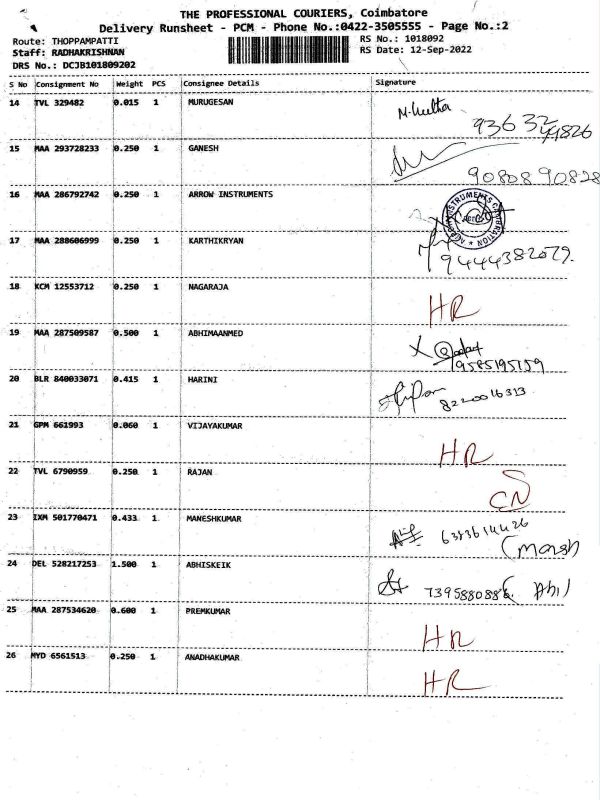 THE PROFESSIONAL COURIERS, Coimbatore
Delivery Runsheet - PCM - Phone No.:0422-3505555 - Page No.:2
Route: THOPPAMPATTI RS No.: 1018092
Staff: RADHAKRISHNAN RS Date: 12-Sep-2022
DRS No.: DCJB101809202
S No Consignment No Weight PCS Consignee Details Signature
14 TVL 329482 0.015 1 MURUGESAN
15 MAA 293728233 0.250 1 GANESH
90808 90828
16 MAA 286792742 0.250 1 ARROW INSTRUMENTS
17 MAA 288606999 0.250 1 KARTHIKRYAN
9444382079.
18 KCM 12553712 0.250 1 NAGARAJA
HR
19 MAA 287509587 0.500 1 ABHIMAANMED
9585195159
20 BLR 840033071 0.415 1 HARINI
8220016313
21 GPM 661993 0.060 1 VIJAYAKUMAR
HR
22 TVL 6790959 0.250 1 RAJAN
CN
23 IXM 501770471 0.433 1 MANESHKUMAR
6383614426
24 DEL 528217253 1.500 1 ABHISKEIK
7395880888
25 MAA 287534620 0.600 1 PREMKUMAR
HR
26 MYD 6561513 0.250 1 ANADHAKUMAR
HR